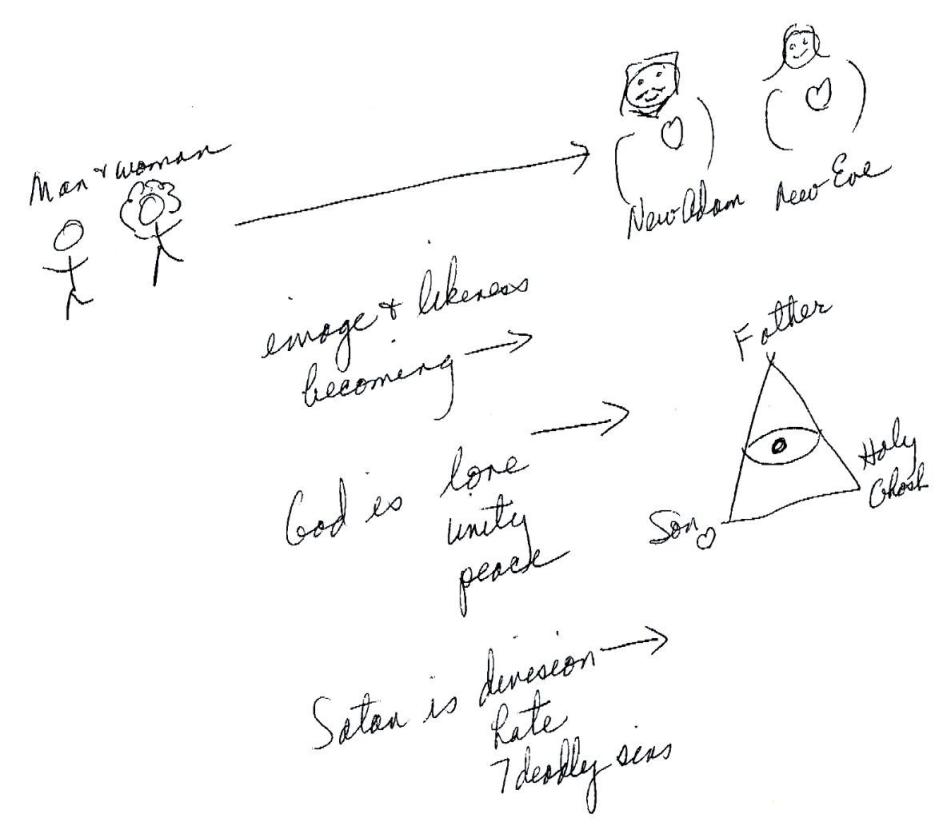 Man & woman
New Adam
New Eve
image & likeness
becoming
Father
God is love
unity
peace
Holy
Ghost
Son
Satan is division
hate
7 deadly sins